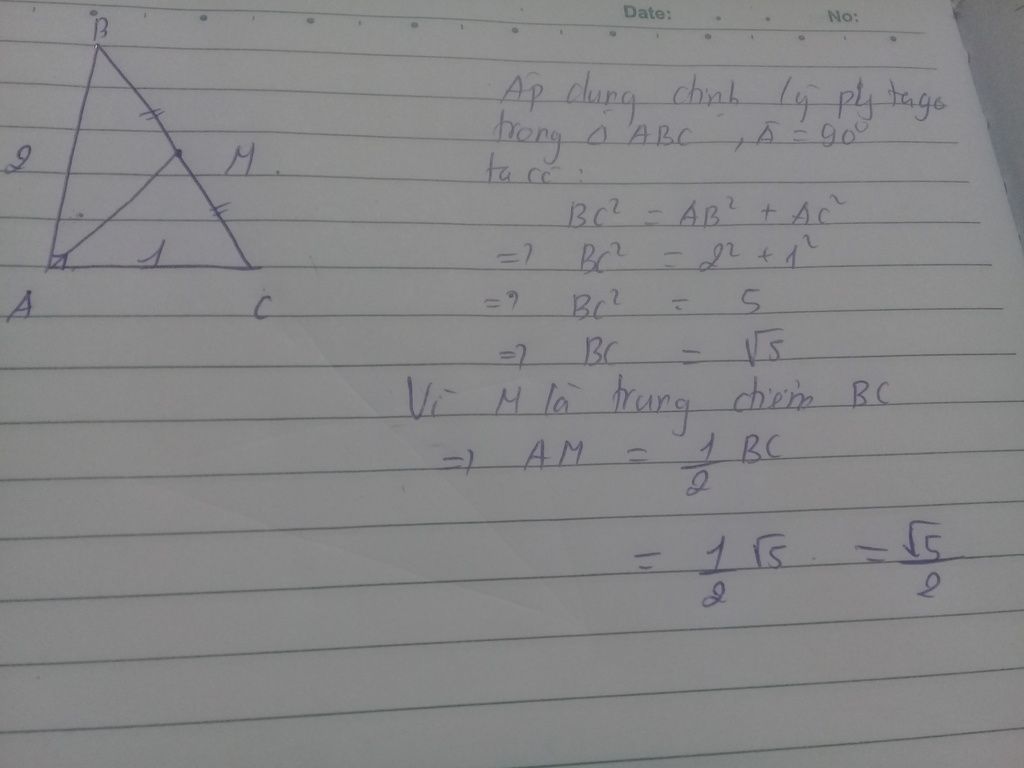 Date: No:
B
2
M
1
A
C
Áp dụng định lý pytago
trong Δ ABC, Â = 90°
ta có:
BC² = AB² + AC²
=> BC² = 2² + 1²
=> BC² = 5
=> BC = √5
Vì M là trung điểm BC
=> AM = 1/2 BC
= 1/2 √5 = √5/2